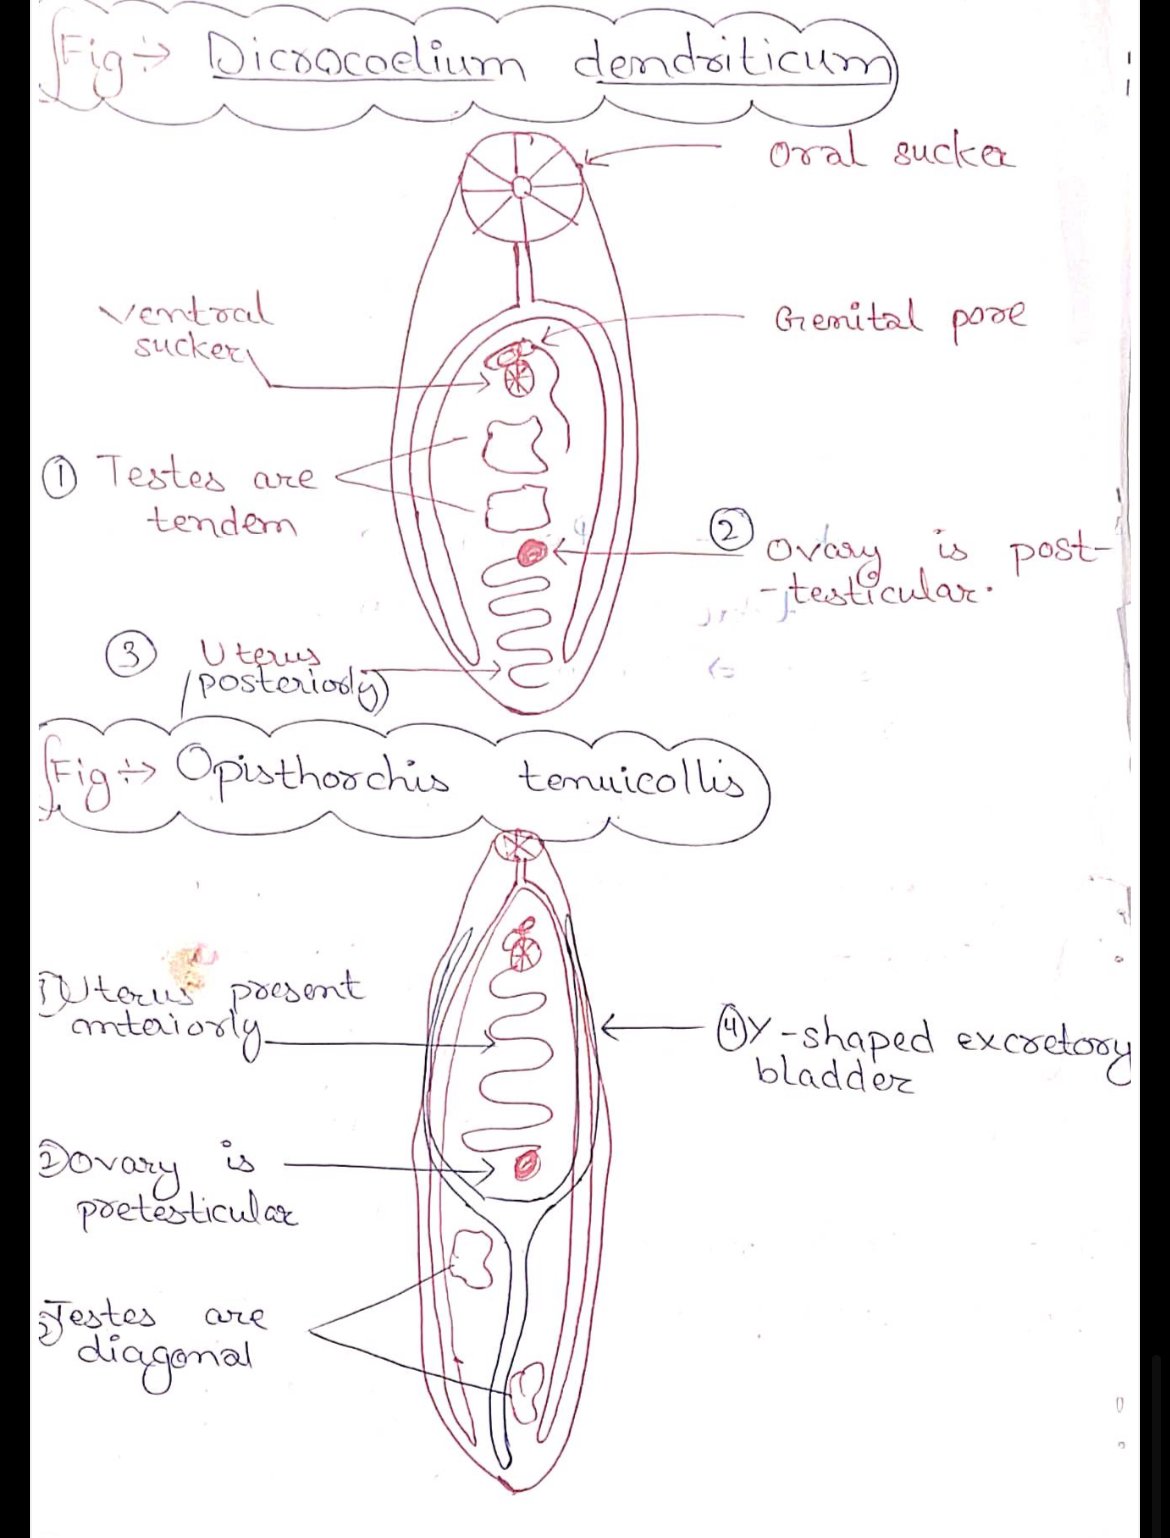 Fig ÷→ Dicrocoelium dendriticum
Oral sucker
Ventral
sucker
Genital pore
① Testes are
tendem
② Ovary is post-
-testicular.
③ Uterus
posteriorly
Fig ÷→ Opisthorchis tenuicollis
1) Uterus present
anteriorly
④ Y-shaped excretory
bladder
2) Ovary is
pretesticular
3) Testes are
diagonal